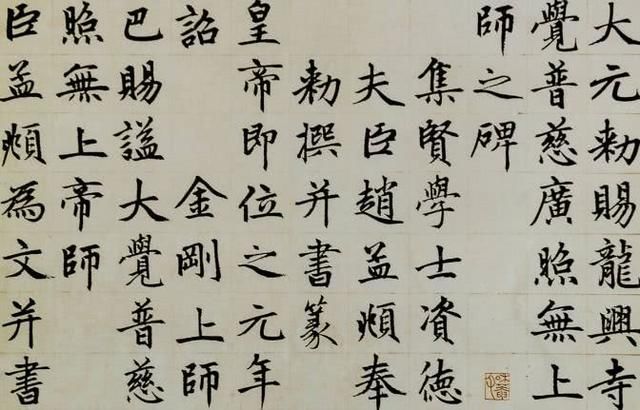 大元勅賜龍興寺
覺普慈廣照無上
師之碑
集賢學士資德
夫臣趙孟頫奉
勅撰并書篆
皇帝即位之元年
詔金剛上師
巴賜謚大覺普慈
照無上帝師
臣孟頫為文并書